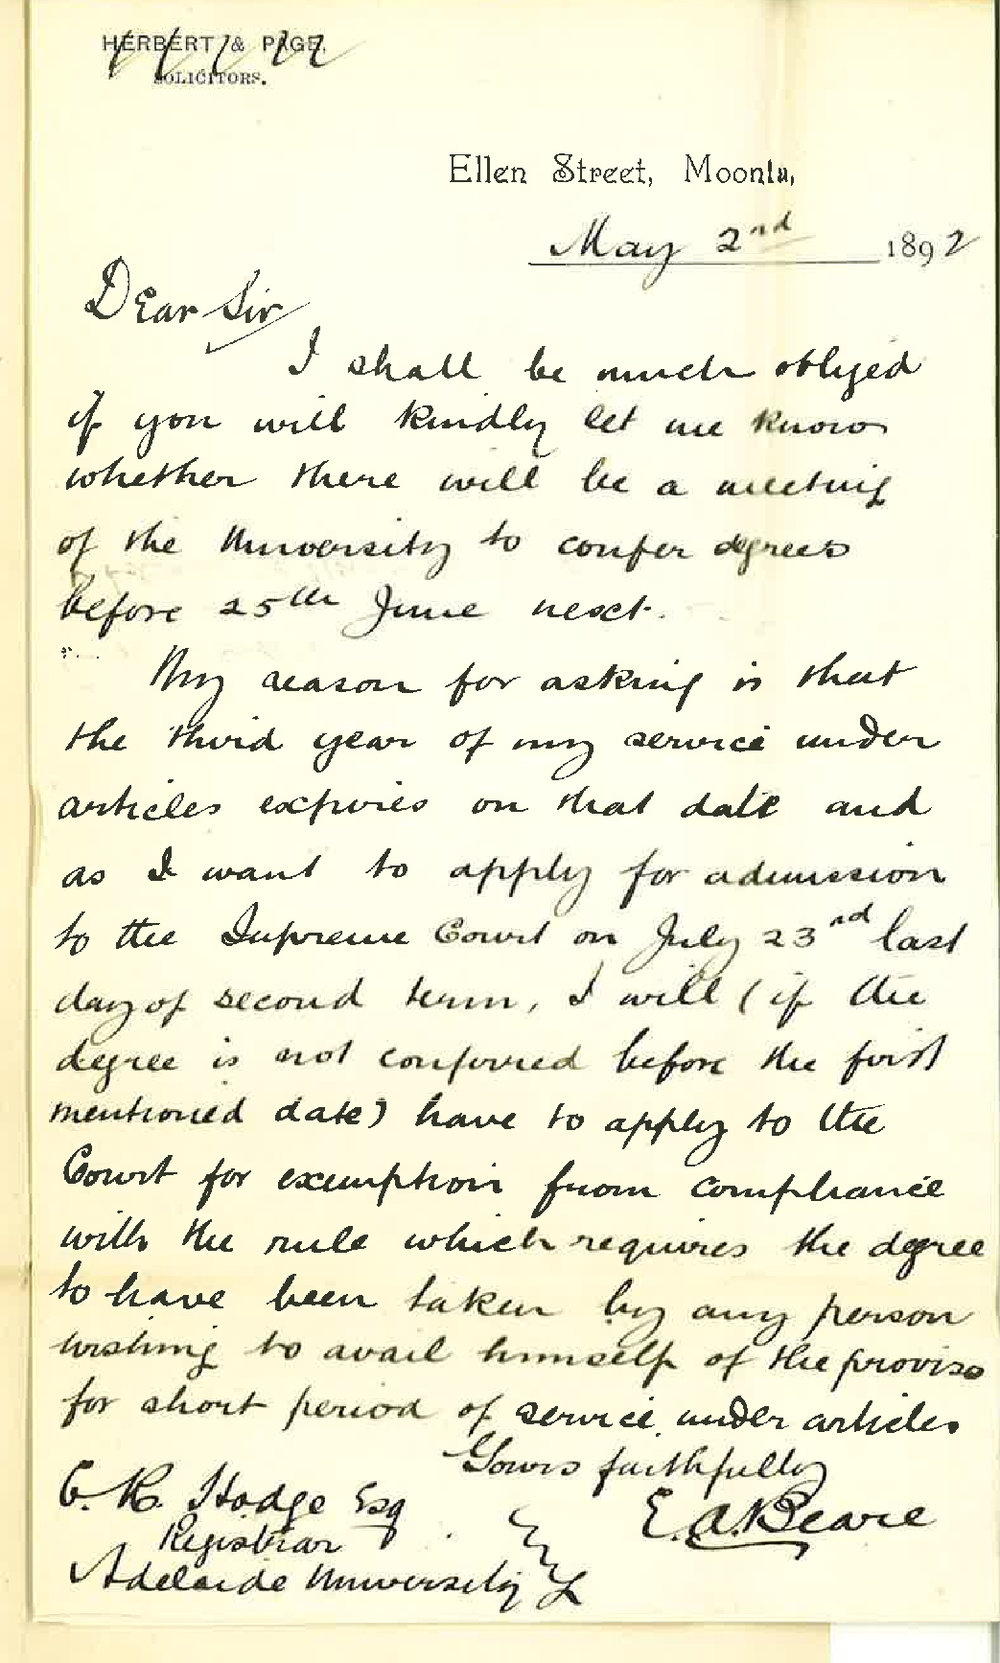 HERBERT & PAGE,
SOLICITORS.
Ellen Street, Moonta,
May 2nd 1892
Dear Sir
I shall be much obliged
if you will kindly let me know
whether there will be a meeting
of the University to confer degrees
before 25th June next.
My reason for asking is that
the third year of my service under
articles expires on that date and
as I want to apply for admission
to the Supreme Court on July 23rd last
day of second term, I will (if the
degree is not conferred before the first
mentioned date) have to apply to the
Court for exemption from compliance
with the rule which requires the degree
to have been taken by any person
wishing to avail himself of the proviso
for short period of service under articles
Yours faithfully
E. A. Beare
C. R. Hodge Esq
Registrar
Adelaide University